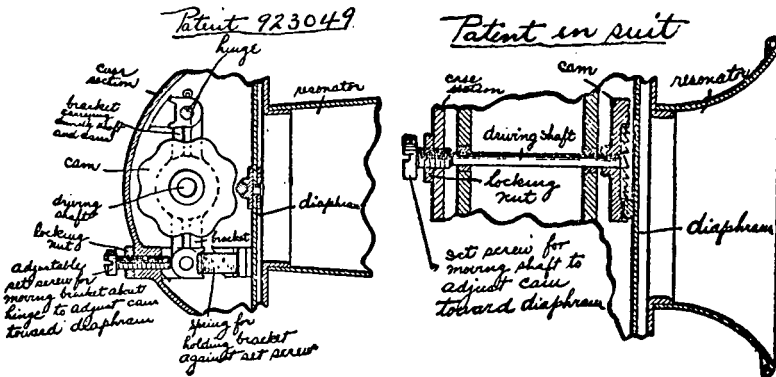 Patent 923049
hinge
case
section
bracket
carrying
driving shaft
and cam
cam
driving
shaft
locking
nut
adjustable
set screw for
moving bracket about
hinge to adjust cam
toward diaphram
resonator
diaphram
bracket
spring for
holding bracket
against set screw
Patent in suit
case
section
cam
resonator
driving shaft
locking
nut
diaphram
set screw for
moving shaft to
adjust cam
toward diaphram